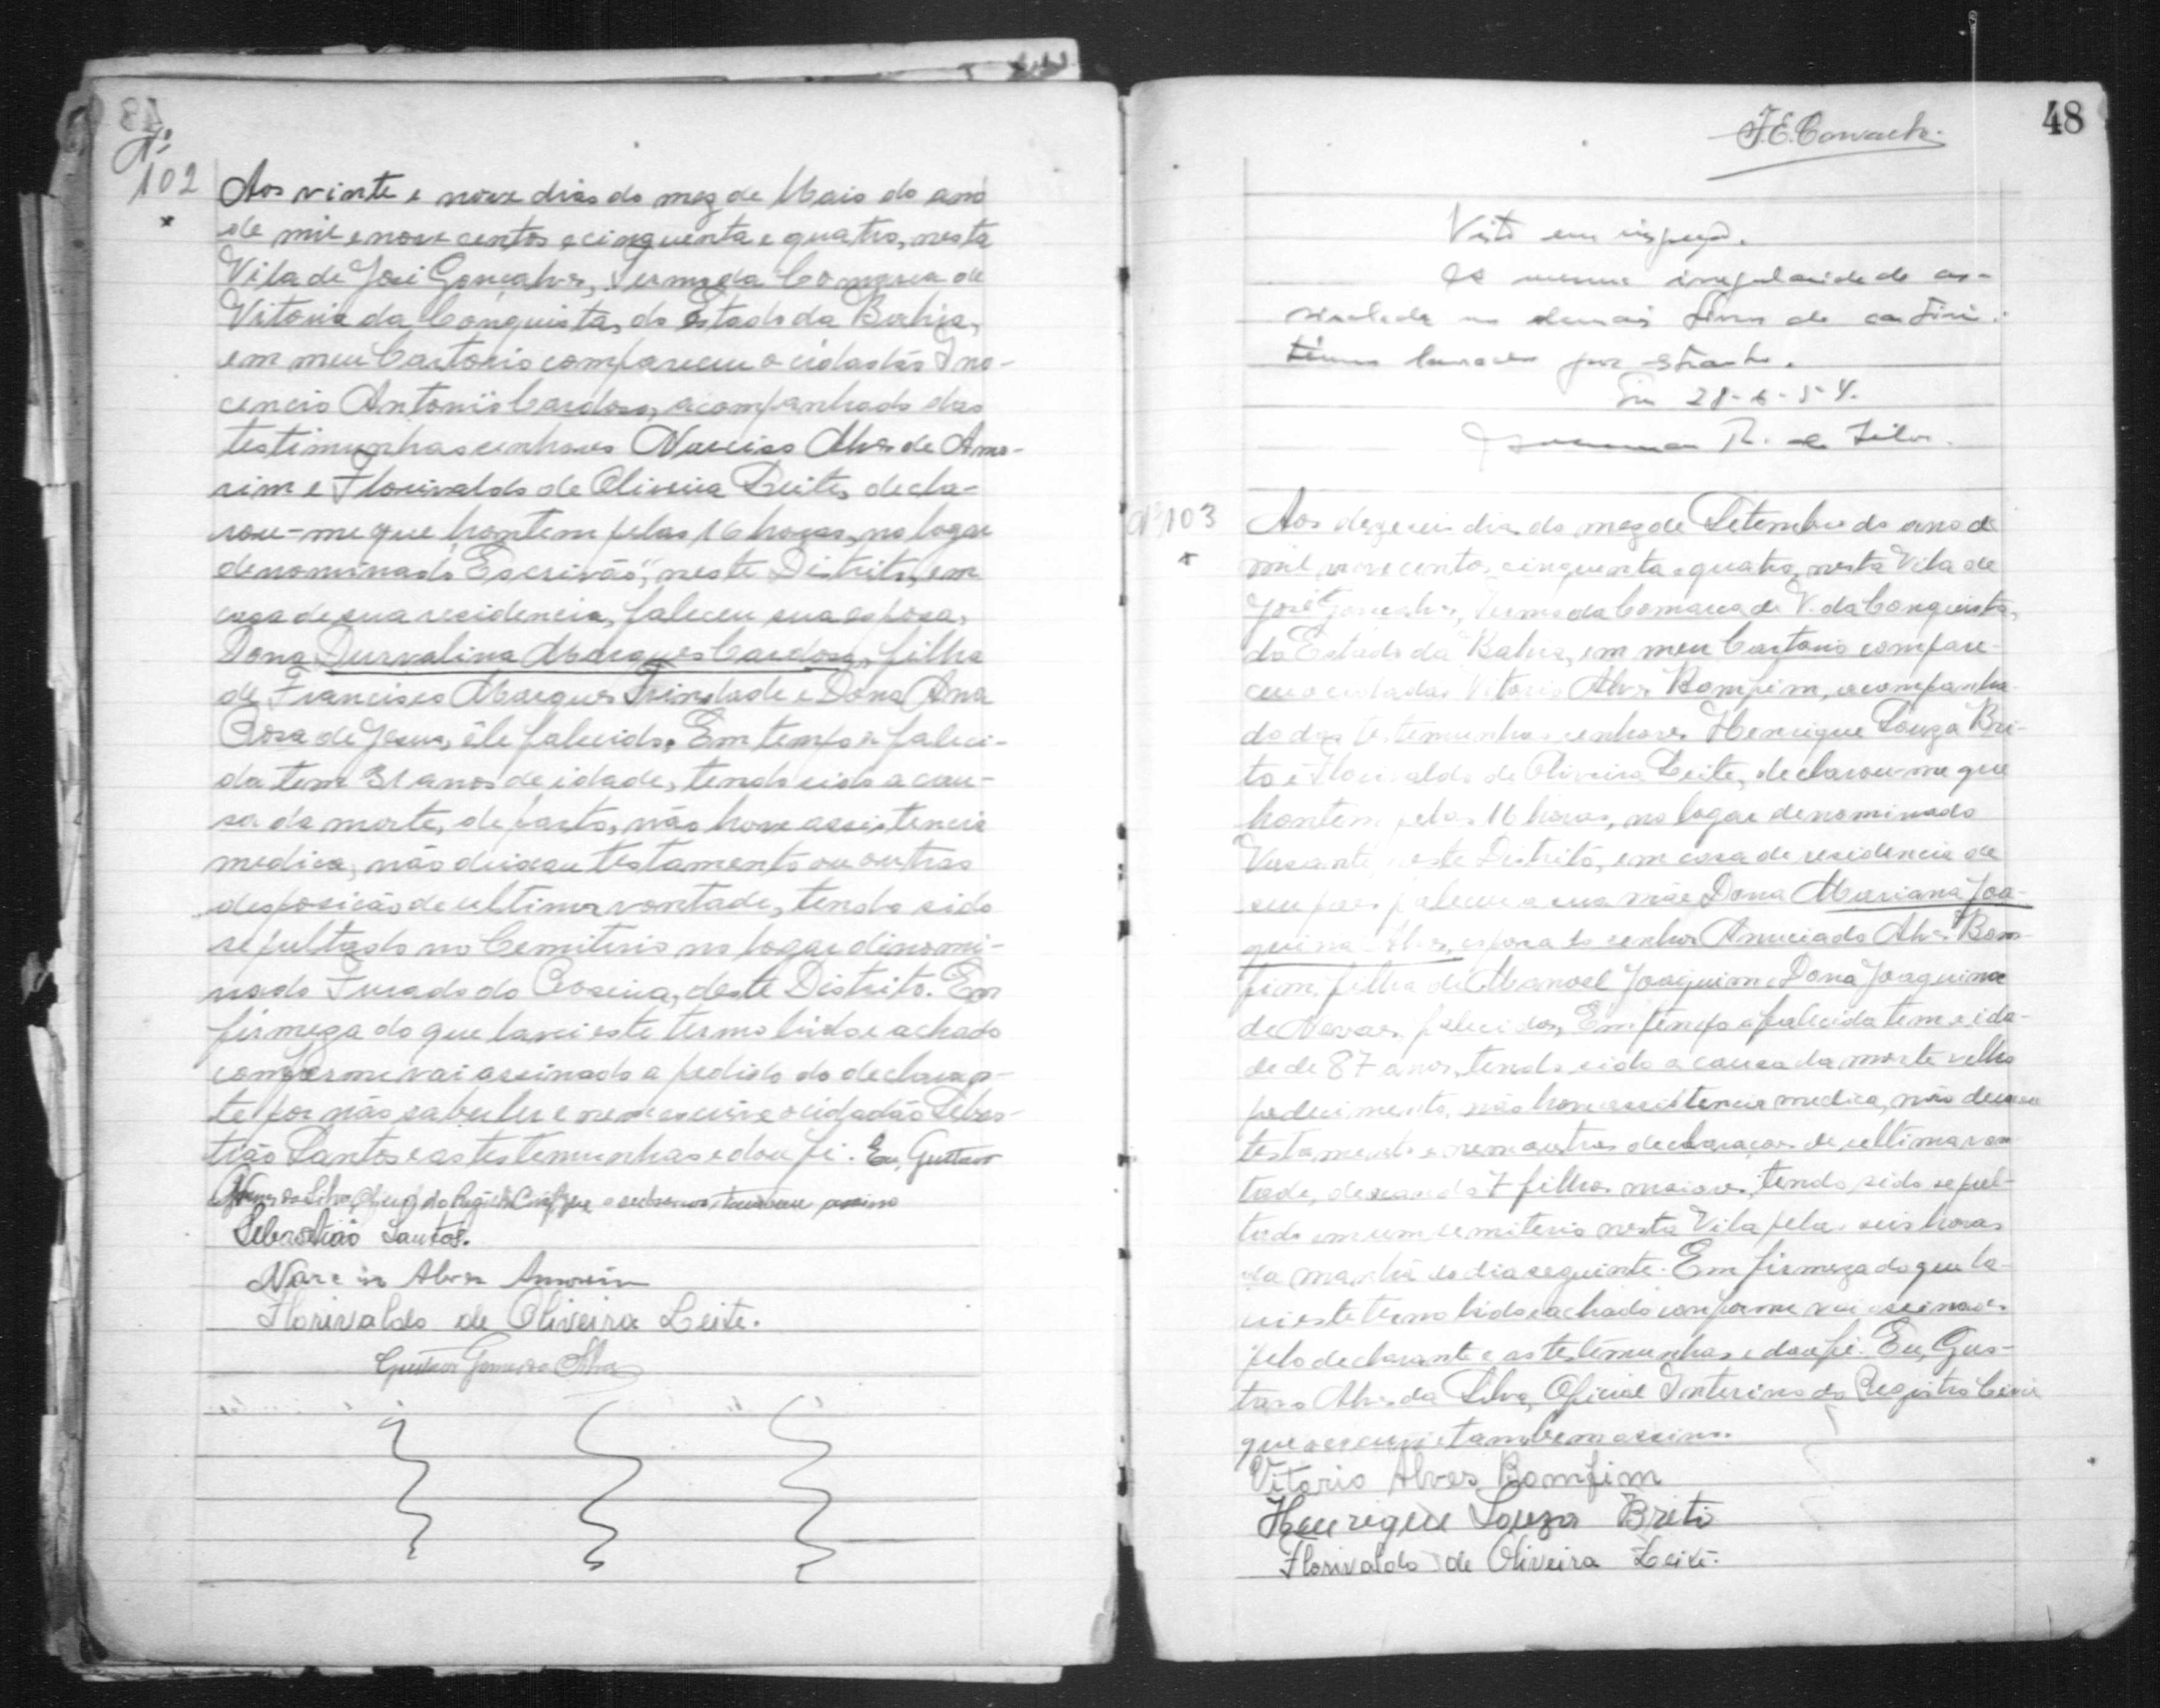 Nº
102
Aos vinte e nove dias do mez de Maio do ano
de mil e nove centos e cinquenta e quatro, nesta
Vila de José Gonçalves, Termo da Comarca de
Vitoria da Conquista, do Estado da Bahia,
em meu Cartorio compareceu o cidadão Ino-
cencio Antonio Cardoso, acompanhado das
testimunhas senhores Narciso Alves de Amo-
rim e Florivaldo de Oliveira Leite, decla-
rou-me que hontem pelas 16 horas, no logar
denominado "Escrivão", neste Distrito, em
casa de sua residencia, faleceu sua esposa,
Dona Durvalina Marques Cardoso, filha
de Francisco Marques Trindade e Dona Ana
Rosa de Jesus, êle falecido. Em tempo a faleci-
da tem 31 anos de idade, tendo sido a cau-
sa da morte, de parto, não hove assistencia
medica, não deixou testamento ou outras
desposição de ultima vontade, tendo sido
sepultado no Cemiterio no logar dinomi-
nado Furado do Roseira, deste Distrito. Em
firmeza do que lavrei este termo lido e achado
conforme vai assinado a pedido do declaran-
te por não saber ler e nem escrever o cidadão Sebas-
tião Santos e as testemunhas e dou fé. Eu, Gustavo
da Silva, do Registro Civil, que o subscrevo, tambem assino
Sebastião Santos.
Narciso Alves Amorim
Florivaldo de Oliveira Leite.
Gustavo da Silva
48
Visto em inspeção.
A mesma irregularidade as-
sinalada nos demais livros do cartorio:
termos lavrados por estranho.
Em 28-6-54.
R. e Silva.
Nº 103
Aos dezeseis dia do mez de Setembro do ano de
mil novecentos e cinquenta e quatro, nesta Vila de
José Gonçalves, Termo da Comarca de V. da Conquista,
do Estado da Bahia, em meu Cartorio compare-
ceu o cidadão Vitorio Alves Bomfim, acompanha-
do das testemunhas senhores Henrique Souza Bri-
to e Florivaldo de Oliveira Leite, declarou-me que
hontem pelas 16 horas, no logar denominado
Vasante, neste Distrito, em casa de residencia de
seu faleceu a sua mãe Dona Mariana Joa-
quina Alves, esposa do senhor Anunciado Alves Bom-
fim, filha de Manoel Joaquim e Dona Joaquina
de Novaes, falecidos, Em tempo a falecida tem a ida-
de de 87 anos, tendo sido a causa da morte velho
padecimento, não hove assistencia medica, não deixou
testamento e nem outras declaraçoes de ultima von-
tade, deixando 7 filhos maiores, tendo sido sepul-
tado em um cemiterio nesta Vila pelas seis horas
da manhã do dia seguinte. Em firmeza do que la-
vrei este termo lido e achado conforme vai assinado
pelo declarante e as testemunhas e dou fé. Eu, Gus-
tavo Alves da Silva, Oficial Interino do Registro Civil
que o escrevi e tambem assino.
Vitorio Alves Bomfim
Henrique Souza Brito
Florivaldo de Oliveira Leite.